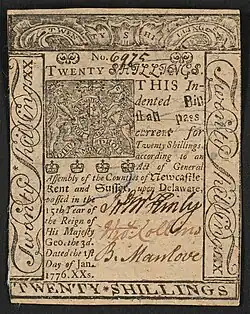 TWENTY SHILLINGS
No. 6975
TWENTY SHILLINGS.
THIS In-
dented Bill
shall pass
current for
Twenty Shillings,
according to an
Act of General
Assembly of the Counties of Newcastle
Kent and Sussex, upon Delaware
passed in the
15th Year of
the Reign of
His Majesty
Geo. the 3d.
Dated the 1st
Day of Jan.
1776. XXs.
Jn McKinly
Thos Collins
B. Manlove
Twenty Shillings XX
Twenty Shillings XX
TWENTY SHILLINGS